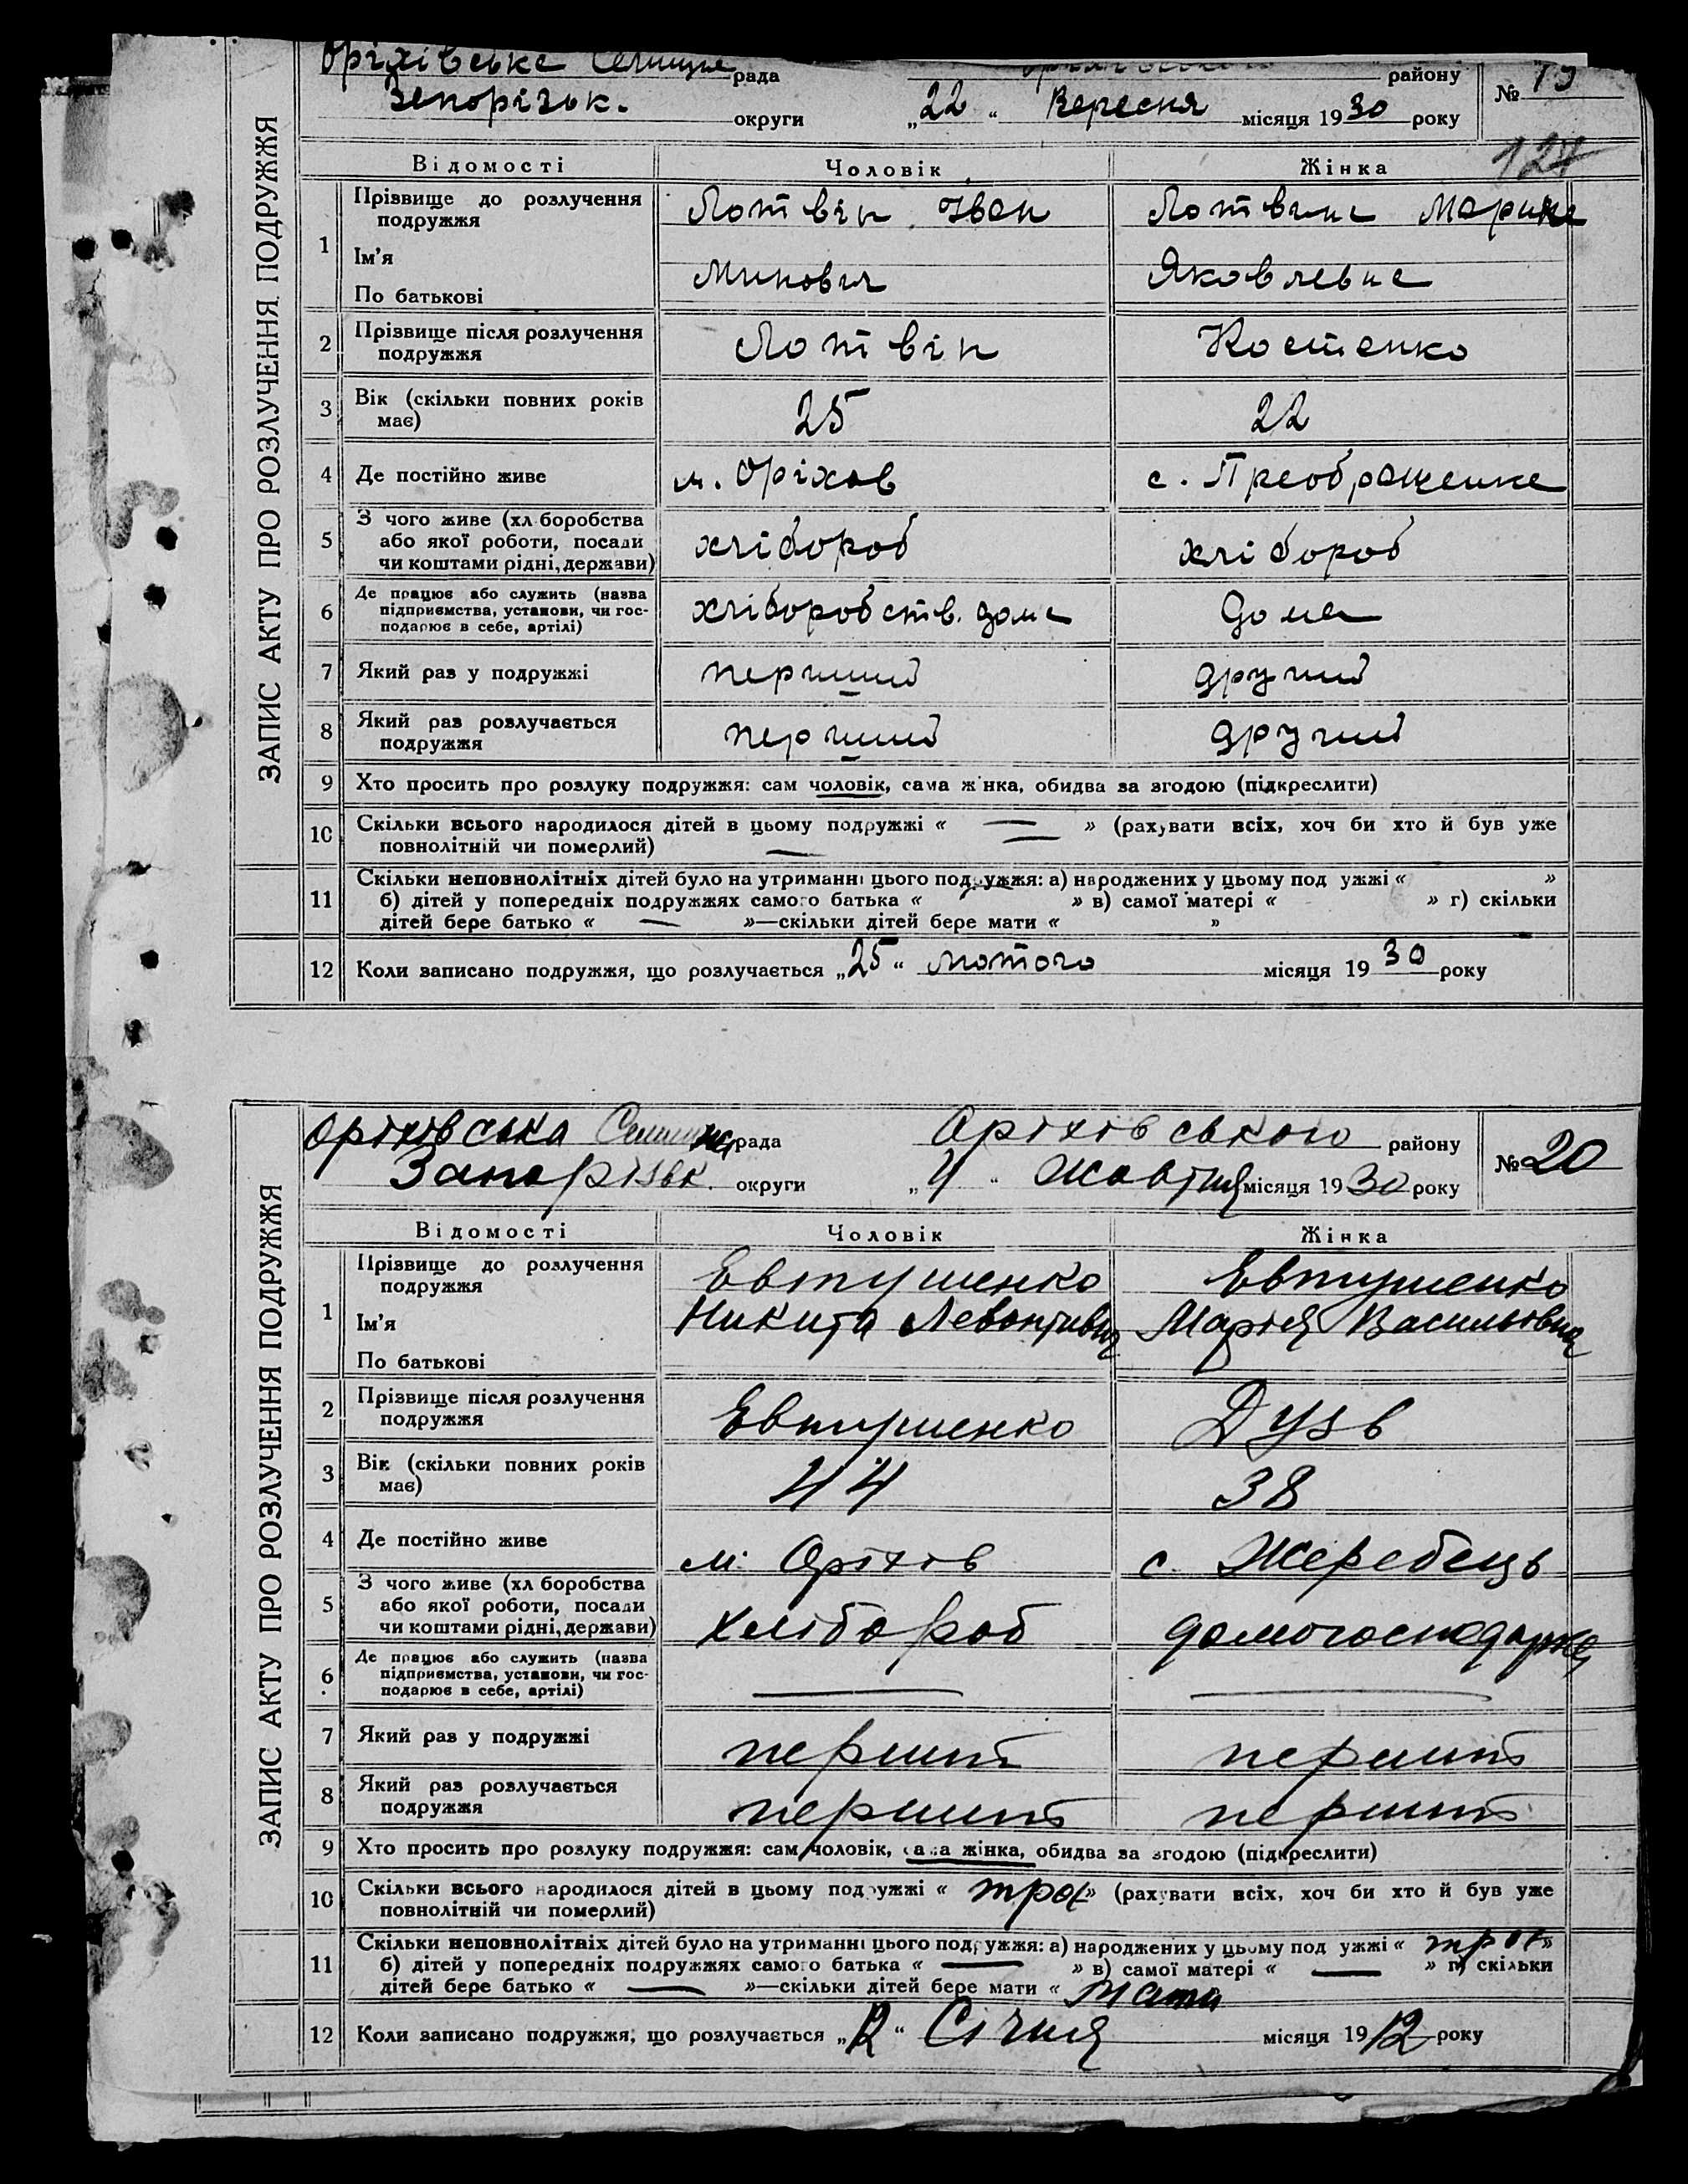 ЗАПИС АКТУ ПРО РОЗЛУЧЕННЯ ПОДРУЖЖЯ
Оріхівська Селищна рада району № 19
Запорізьк. округи „22“ Вересня місяця 1930 року
124
Відомості Чоловік Жінка
1 Прізвище до розлучення подружжя Лотвін Іван Лотвина Марина
Ім'я
По батькові Минович Яковлевна
2 Прізвище після розлучення подружжя Лотвін Костенко
3 Вік (скільки повних років має) 25 22
4 Де постійно живе м. Оріхов с. Преображенка
5 З чого живе (хл боробства або якої роботи, посади чи коштами рідні, держави) хлібороб хлібороб
6 Де працює або служить (назва підприємства, установи, чи господарює в себе, артілі) хліборобств. дома дома
7 Який раз у подружжі перший другий
8 Який раз розлучається подружжя перший другий
9 Хто просить про розлуку подружжя: сам чоловік, сама жінка, обидва за згодою (підкреслити)
10 Скільки всього народилося дітей в цьому подружжі « — » (рахувати всіх, хоч би хто й був уже
повнолітній чи померлий)
11 Скільки неповнолітніх дітей було на утриманні цього подружжя: а) народжених у цьому под ужжі « »
б) дітей у попередніх подружжях самого батька « » в) самої матері « » г) скільки
дітей бере батько « — »—скільки дітей бере мати « »
12 Коли записано подружжя, що розлучається „25“ лютого місяця 1930 року
ЗАПИС АКТУ ПРО РОЗЛУЧЕННЯ ПОДРУЖЖЯ
Оріхівська Селищна рада Оріхівського району № 20
Запорізьк. округи „4“ Жовтня місяця 1930 року
Відомості Чоловік Жінка
1 Прізвище до розлучення подружжя Евтушенко Евтушенко
Ім'я Никита Левонтивич Марія Васильовна
По батькові
2 Прізвище після розлучення подружжя Евтушенко Дузь
3 Вік (скільки повних років має) 44 38
4 Де постійно живе м. Оріхів с. Жеребець
5 З чого живе (хл боробства або якої роботи, посади чи коштами рідні, держави) хлібороб домогосподарка
6 Де працює або служить (назва підприємства, установи, чи господарює в себе, артілі) — —
7 Який раз у подружжі перший перший
8 Який раз розлучається подружжя перший перший
9 Хто просить про розлуку подружжя: сам чоловік, сама жінка, обидва за згодою (підкреслити)
10 Скільки всього народилося дітей в цьому подружжі « троє » (рахувати всіх, хоч би хто й був уже
повнолітній чи померлий)
11 Скільки неповнолітніх дітей було на утриманні цього подружжя: а) народжених у цьому под ужжі « троє »
б) дітей у попередніх подружжях самого батька « — » в) самої матері « — » г) скільки
дітей бере батько « — »—скільки дітей бере мати « Мати
12 Коли записано подружжя, що розлучається „12“ Січня місяця 1912 року